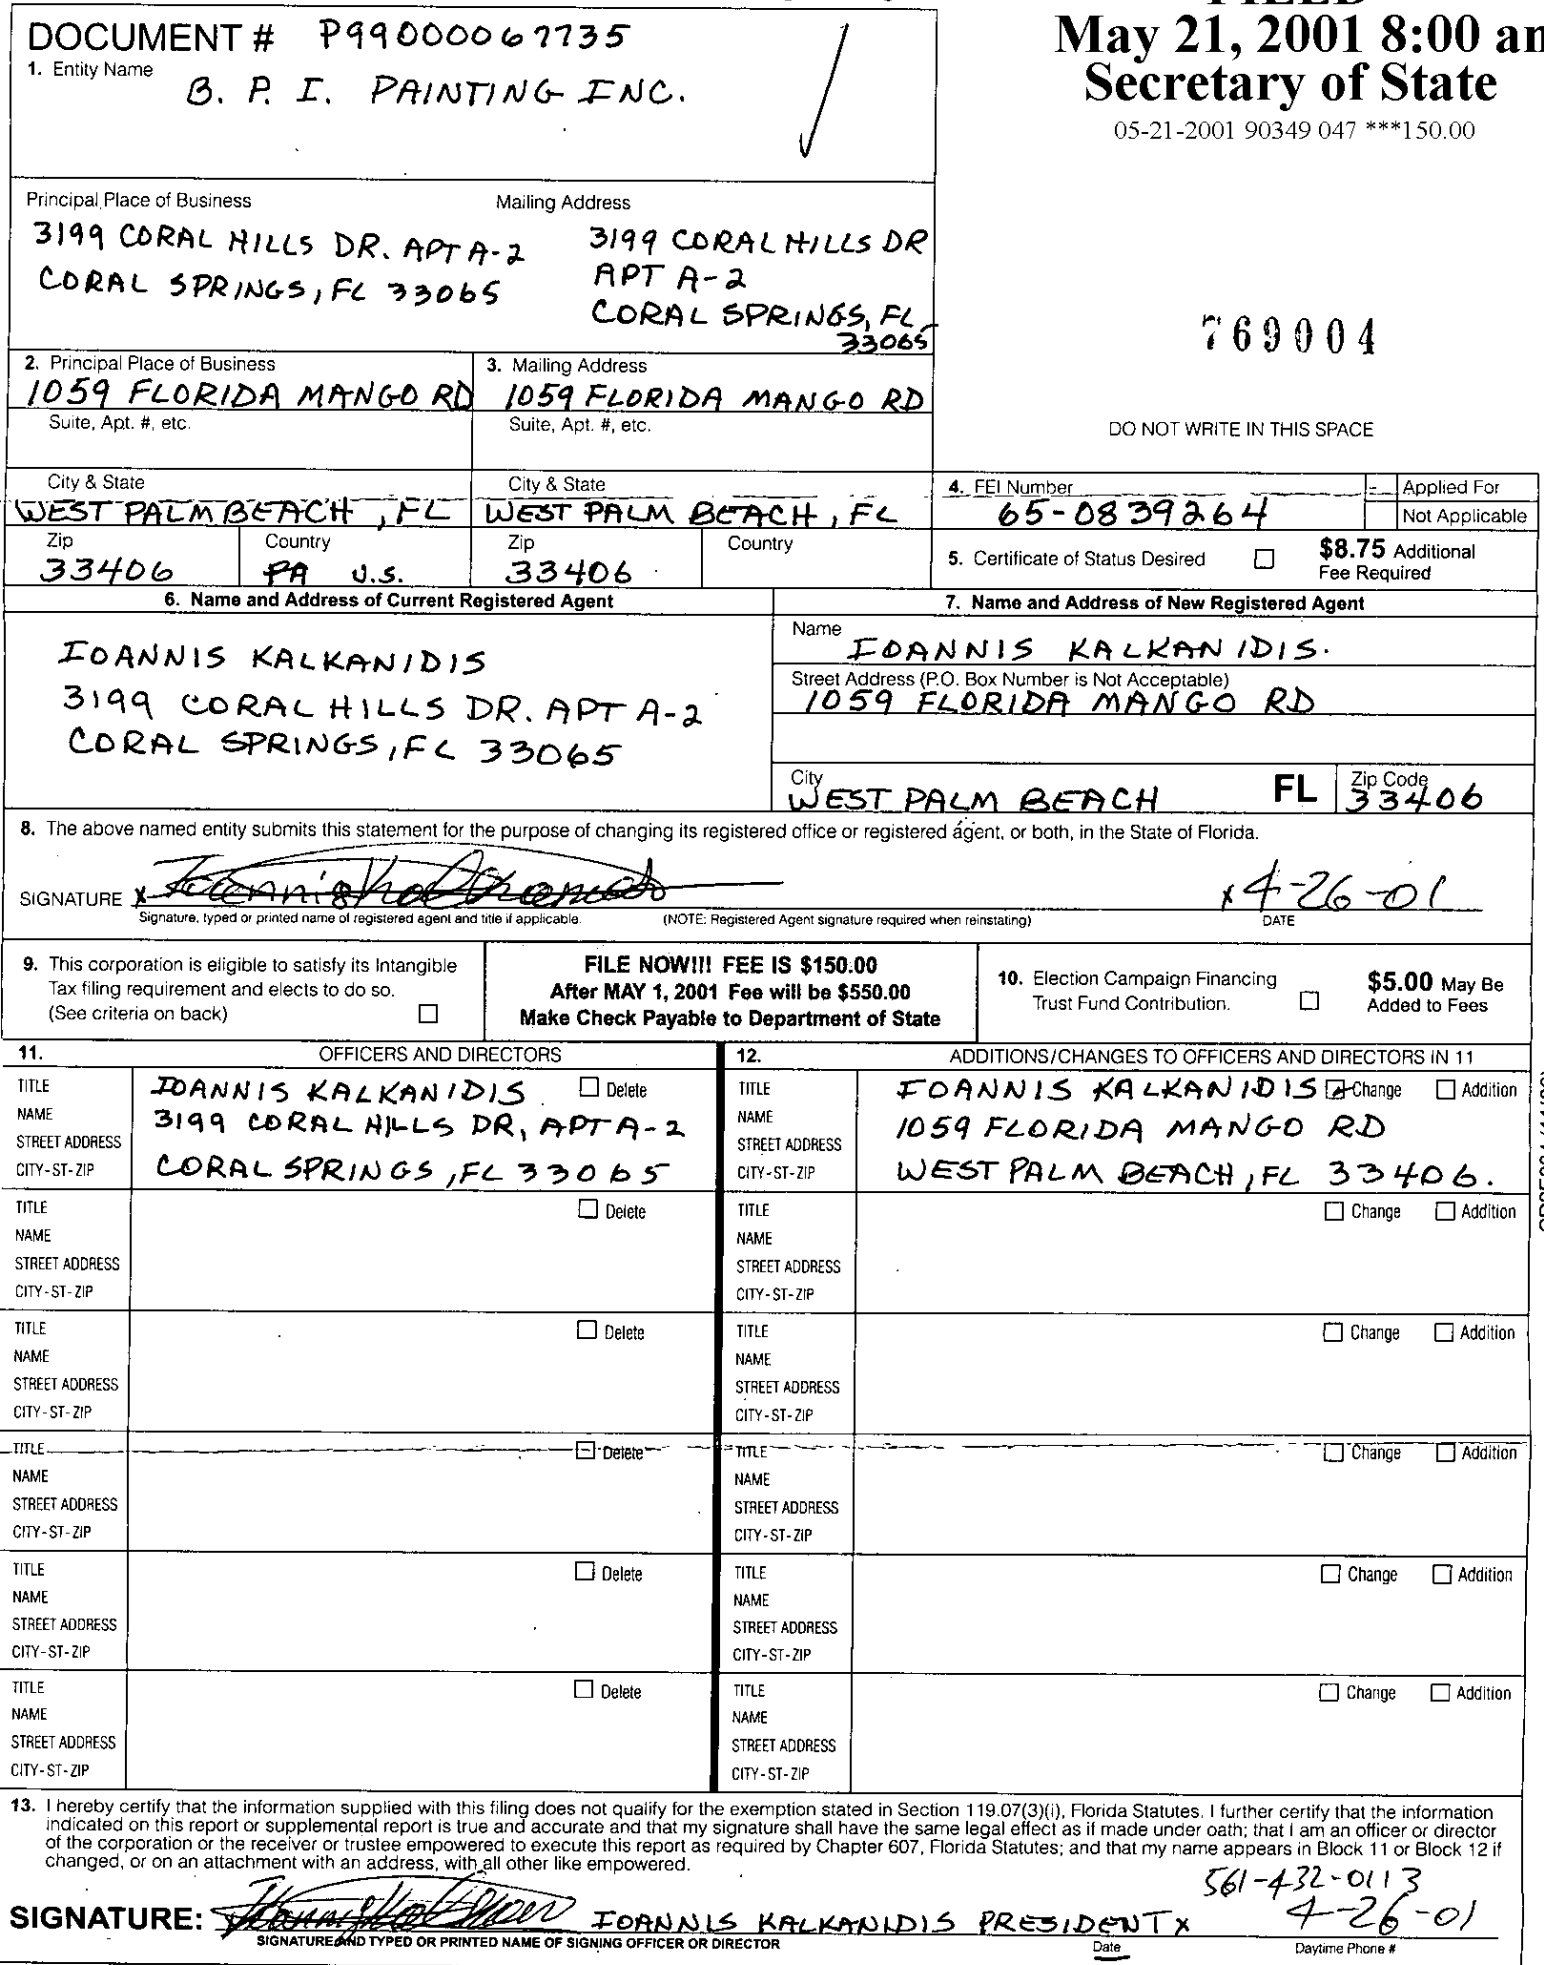 May 21, 2001 8:00 am
Secretary of State
05-21-2001 90349 047 ***150.00
DOCUMENT # P99000067735
1. Entity Name
B. P. I. PAINTING INC.
Principal Place of Business
3199 CORAL HILLS DR. APT A-2
CORAL SPRINGS, FL 33065
Mailing Address
3199 CORAL HILLS DR
APT A-2
CORAL SPRINGS, FL
33065
769004
DO NOT WRITE IN THIS SPACE
2. Principal Place of Business
1059 FLORIDA MANGO RD
Suite, Apt. #, etc.
City & State
WEST PALM BEACH, FL
Zip
33406
Country
PA U.S.
3. Mailing Address
1059 FLORIDA MANGO RD
Suite, Apt. #, etc.
City & State
WEST PALM BEACH, FL
Zip
33406
Country
4. FEI Number
65-0839264
Applied For
Not Applicable
5. Certificate of Status Desired
$8.75 Additional
Fee Required
6. Name and Address of Current Registered Agent
IOANNIS KALKANIDIS
3199 CORAL HILLS DR. APT A-2
CORAL SPRINGS, FL 33065
7. Name and Address of New Registered Agent
Name
IOANNIS KALKANIDIS.
Street Address (P.O. Box Number is Not Acceptable)
1059 FLORIDA MANGO RD
City
WEST PALM BEACH
FL
Zip Code
33406
8. The above named entity submits this statement for the purpose of changing its registered office or registered agent, or both, in the State of Florida.
SIGNATURE x
x 4-26-01
Signature, typed or printed name of registered agent and title if applicable.
(NOTE: Registered Agent signature required when reinstating)
DATE
9. This corporation is eligible to satisfy its Intangible
Tax filing requirement and elects to do so.
(See criteria on back)
FILE NOW!!! FEE IS $150.00
After MAY 1, 2001 Fee will be $550.00
Make Check Payable to Department of State
10. Election Campaign Financing
Trust Fund Contribution.
$5.00 May Be
Added to Fees
11. OFFICERS AND DIRECTORS
12. ADDITIONS/CHANGES TO OFFICERS AND DIRECTORS IN 11
TITLE IOANNIS KALKANIDIS Delete
NAME 3199 CORAL HILLS DR, APT A-2
STREET ADDRESS
CITY-ST-ZIP CORAL SPRINGS, FL 33065
TITLE IOANNIS KALKANIDIS Change Addition
NAME
STREET ADDRESS 1059 FLORIDA MANGO RD
CITY-ST-ZIP WEST PALM BEACH, FL 33406.
TITLE Delete
NAME
STREET ADDRESS
CITY-ST-ZIP
TITLE Change Addition
NAME
STREET ADDRESS
CITY-ST-ZIP
TITLE Delete
NAME
STREET ADDRESS
CITY-ST-ZIP
TITLE Change Addition
NAME
STREET ADDRESS
CITY-ST-ZIP
TITLE Delete
NAME
STREET ADDRESS
CITY-ST-ZIP
TITLE Change Addition
NAME
STREET ADDRESS
CITY-ST-ZIP
TITLE Delete
NAME
STREET ADDRESS
CITY-ST-ZIP
TITLE Change Addition
NAME
STREET ADDRESS
CITY-ST-ZIP
TITLE Delete
NAME
STREET ADDRESS
CITY-ST-ZIP
TITLE Change Addition
NAME
STREET ADDRESS
CITY-ST-ZIP
13. I hereby certify that the information supplied with this filing does not qualify for the exemption stated in Section 119.07(3)(i), Florida Statutes. I further certify that the information
indicated on this report or supplemental report is true and accurate and that my signature shall have the same legal effect as if made under oath; that I am an officer or director
of the corporation or the receiver or trustee empowered to execute this report as required by Chapter 607, Florida Statutes; and that my name appears in Block 11 or Block 12 if
changed, or on an attachment with an address, with all other like empowered.
561-432-0113
SIGNATURE: IOANNIS KALKANIDIS PRESIDENT x 4-26-01
SIGNATURE AND TYPED OR PRINTED NAME OF SIGNING OFFICER OR DIRECTOR
Date
Daytime Phone #